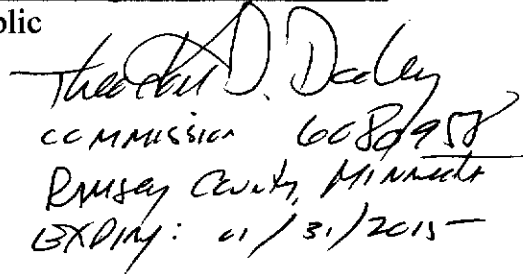 blic
Theodore D. Dooley
COMMISSION 6080958
Ramsey County, Minnesota
EXPIRY: 01/31/2015